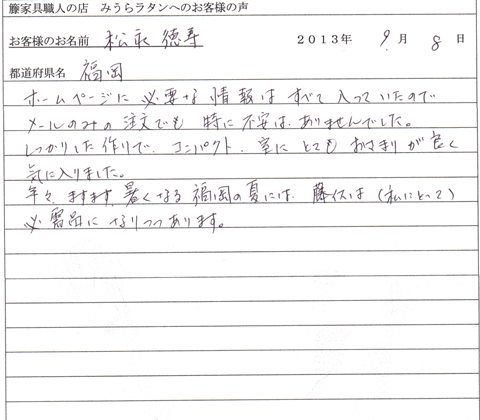 籐家具職人の店 みうらラタンへのお客様の声
お客様のお名前 松永 徳寿 2013年 9月 8日
都道府県名 福岡
ホームページに 必要な 情報は すべて 入っていたので
メールのみの 注文でも 特に 不安は ありませんでした。
しっかりした 作りで、コンパクト、室に とても おさまりが 良く
気に入りました。
年々、ますます 暑くなる 福岡の 夏には 藤枕は (私にとって)
必需品に なりつつ あります。